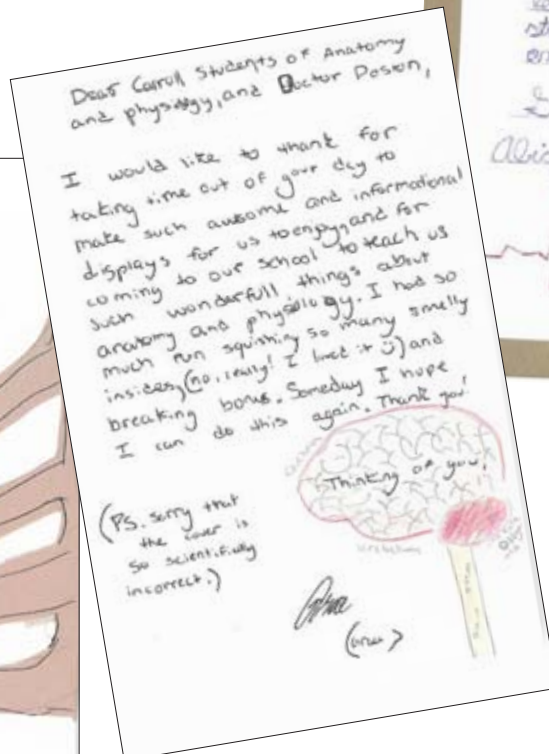 Dear Carroll Students of Anatomy
and physiology, and Doctor Doson,
I would like to thank for
taking time out of your day to
make such awsome and informational
displays for us to enjoy, and for
coming to our school to teach us
such wonderfull things about
anatomy and physiology. I had so
much fun squishing so many smelly
insides, (no, really! I loved it ü) and
breaking bones. Someday I hope
I can do this again. Thank you!
Thinking of you!
(PS. sorry that
the cover is
so scientifically
incorrect.)